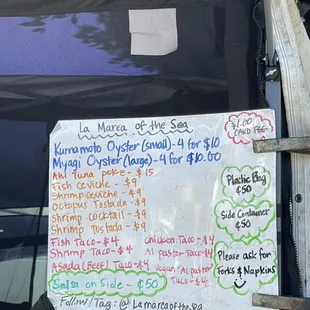 La Marea of the Sea
Kumamoto Oyster (small) - 4 for $10
Myagi Oyster (large) - 4 for $10.00
Ahi Tuna Poke - $15
Fish Ceviche - $9
Shrimp Ceviche - $9
Octopus Tostada - $9
Shrimp Cocktail - $9
Shrimp Tostada - $9
Fish Taco - $4
Shrimp Taco - $4
Asada (Beef) Taco - $4
Chicken Taco - $4
Al pastor Taco - $4
Vegan "Al pastor"
Taco - $4
Salsa on Side - ¢50
Follow/Tag: @ La marea of the sea
$1.00
CARD FEE
Plastic Bag
¢50
Side Container
¢50
Please ask for
Forks & Napkins